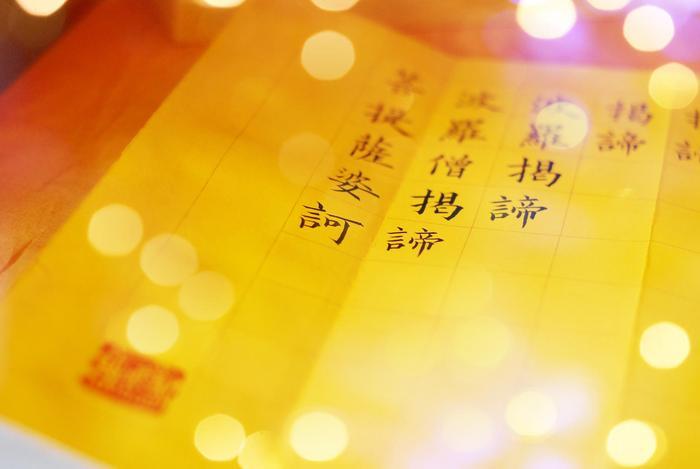 揭諦
波羅揭諦
波羅僧揭諦
菩提薩婆訶